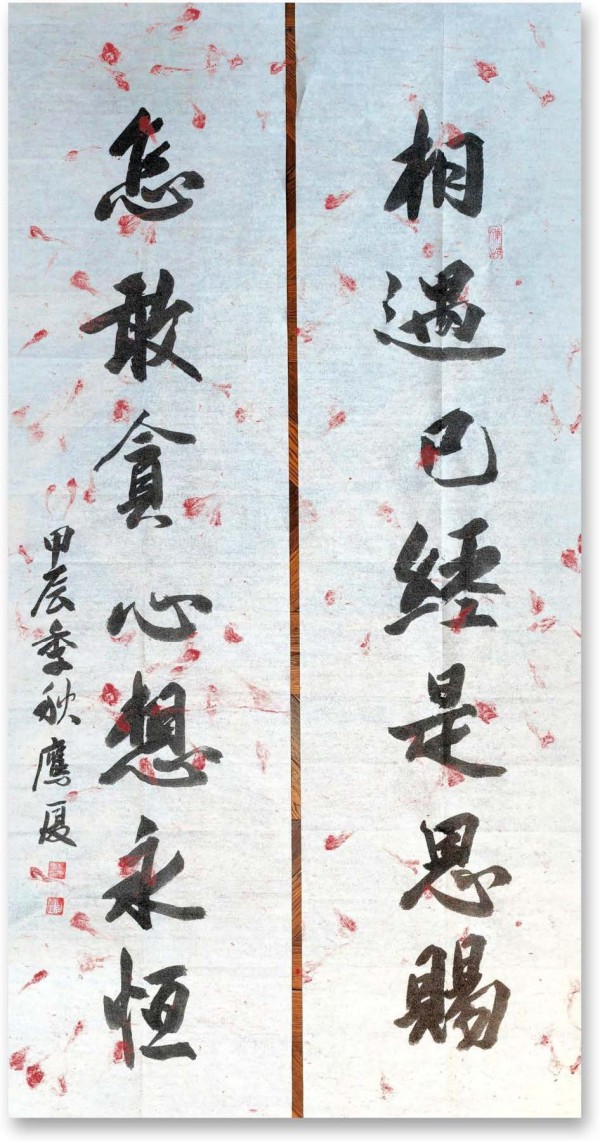 相遇已經是恩賜
怎敢貪心想永恒
甲辰季秋鷹厦